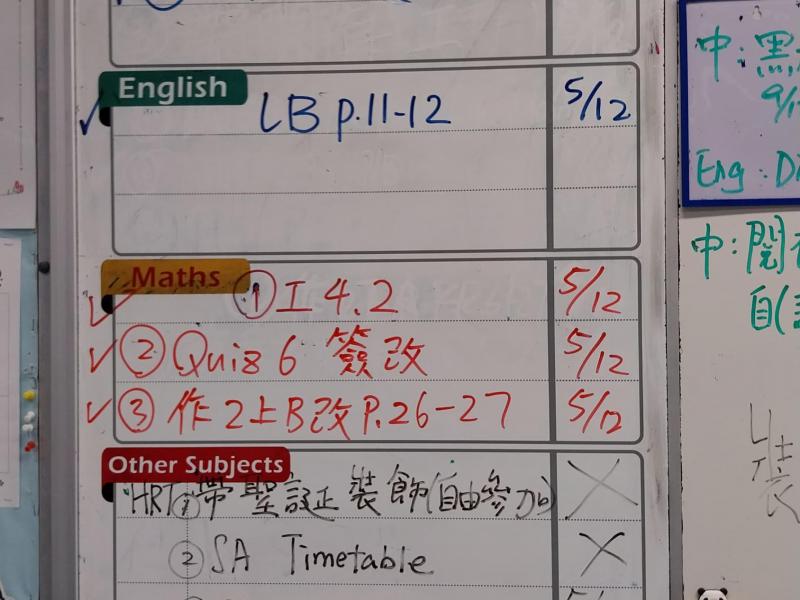 English
LB p.11-12 5/12
Maths
① 工 4.2 5/12
② Quiz 6 簽改 5/12
③ 作2上B改 P.26-27 5/12
Other Subjects
HRT ① 帶聖誕裝飾(自由參加)
② SA Timetable
中:黑
9/1
Eng:
中:閱
自(
裝